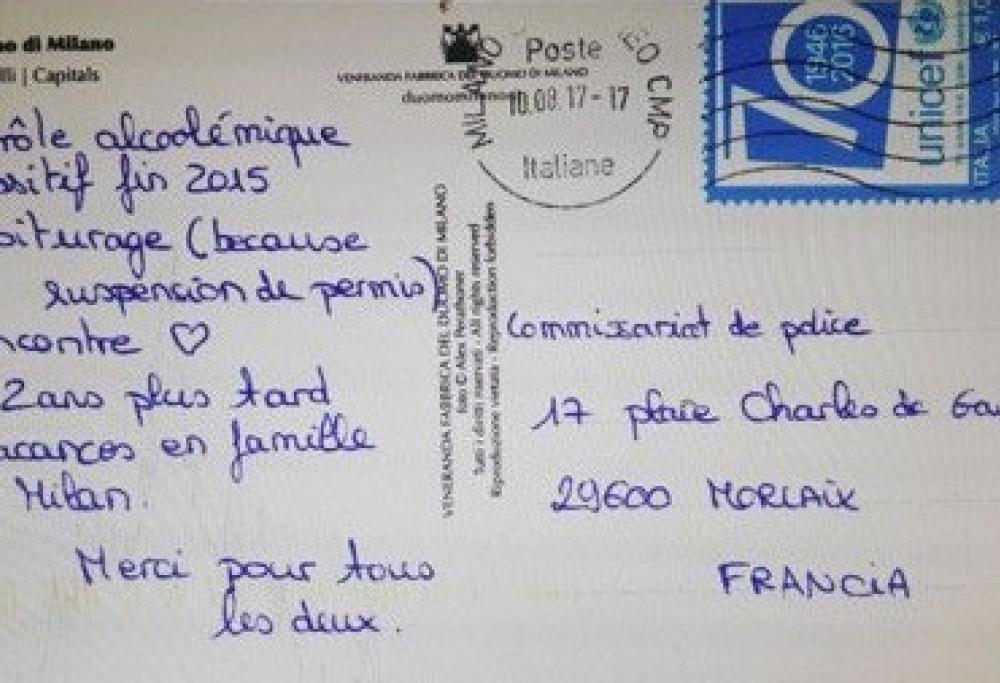 no di Milano
lli | Capitals
rôle alcoolémique
ositif fin 2015
oiturage (because
suspension de permis)
ncontre ♡
2 ans plus tard
acances en famille
Milan.
Merci pour tous
les deux.
VENERANDA FABBRICA DEL DUOMO DI MILANO
Poste
Italiane
10.08.17-17
MILANO
CMP
1946
2016
70
unicef
ITALIA
VENERANDA FABBRICA DEL DUOMO DI MILANO
Tutti i diritti riservati - All rights reserved
Riproduzione vietata - Reproduction forbidden
Commissariat de police
17 place Charles de Ga
29600 MORLAIX
FRANCIA